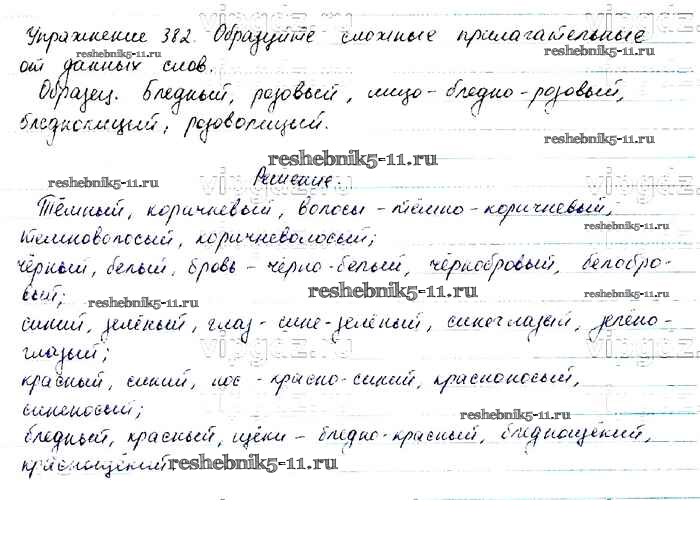 Упражнение 382. Образуйте сложные прилагательные
reshebnik5-11.ru
от данных слов.
reshebnik5-11.ru
Образец. Бледный, розовый, лицо - бледно-розовый,
бледнолицый, розоволицый.
reshebnik5-11.ru
reshebnik5-11.ru
Решение.
Тёмный, коричневый, волосы - тёмно-коричневый,
темноволосый, коричневолосый;
reshebnik5-11.ru
чёрный, белый, бровь - чёрно-белый, чернобровый, белобро-
вый;
reshebnik5-11.ru
reshebnik5-11.ru
синий, зелёный, глаз - сине-зелёный, синеглазый, зелено-
глазый;
vipgdz.ru
красный, синий, нос - красно-синий, красноносый,
синеносый;
reshebnik5-11.ru
бледный, красный, щёки - бледно-красный, бледнощёкий,
краснощёкий
reshebnik5-11.ru